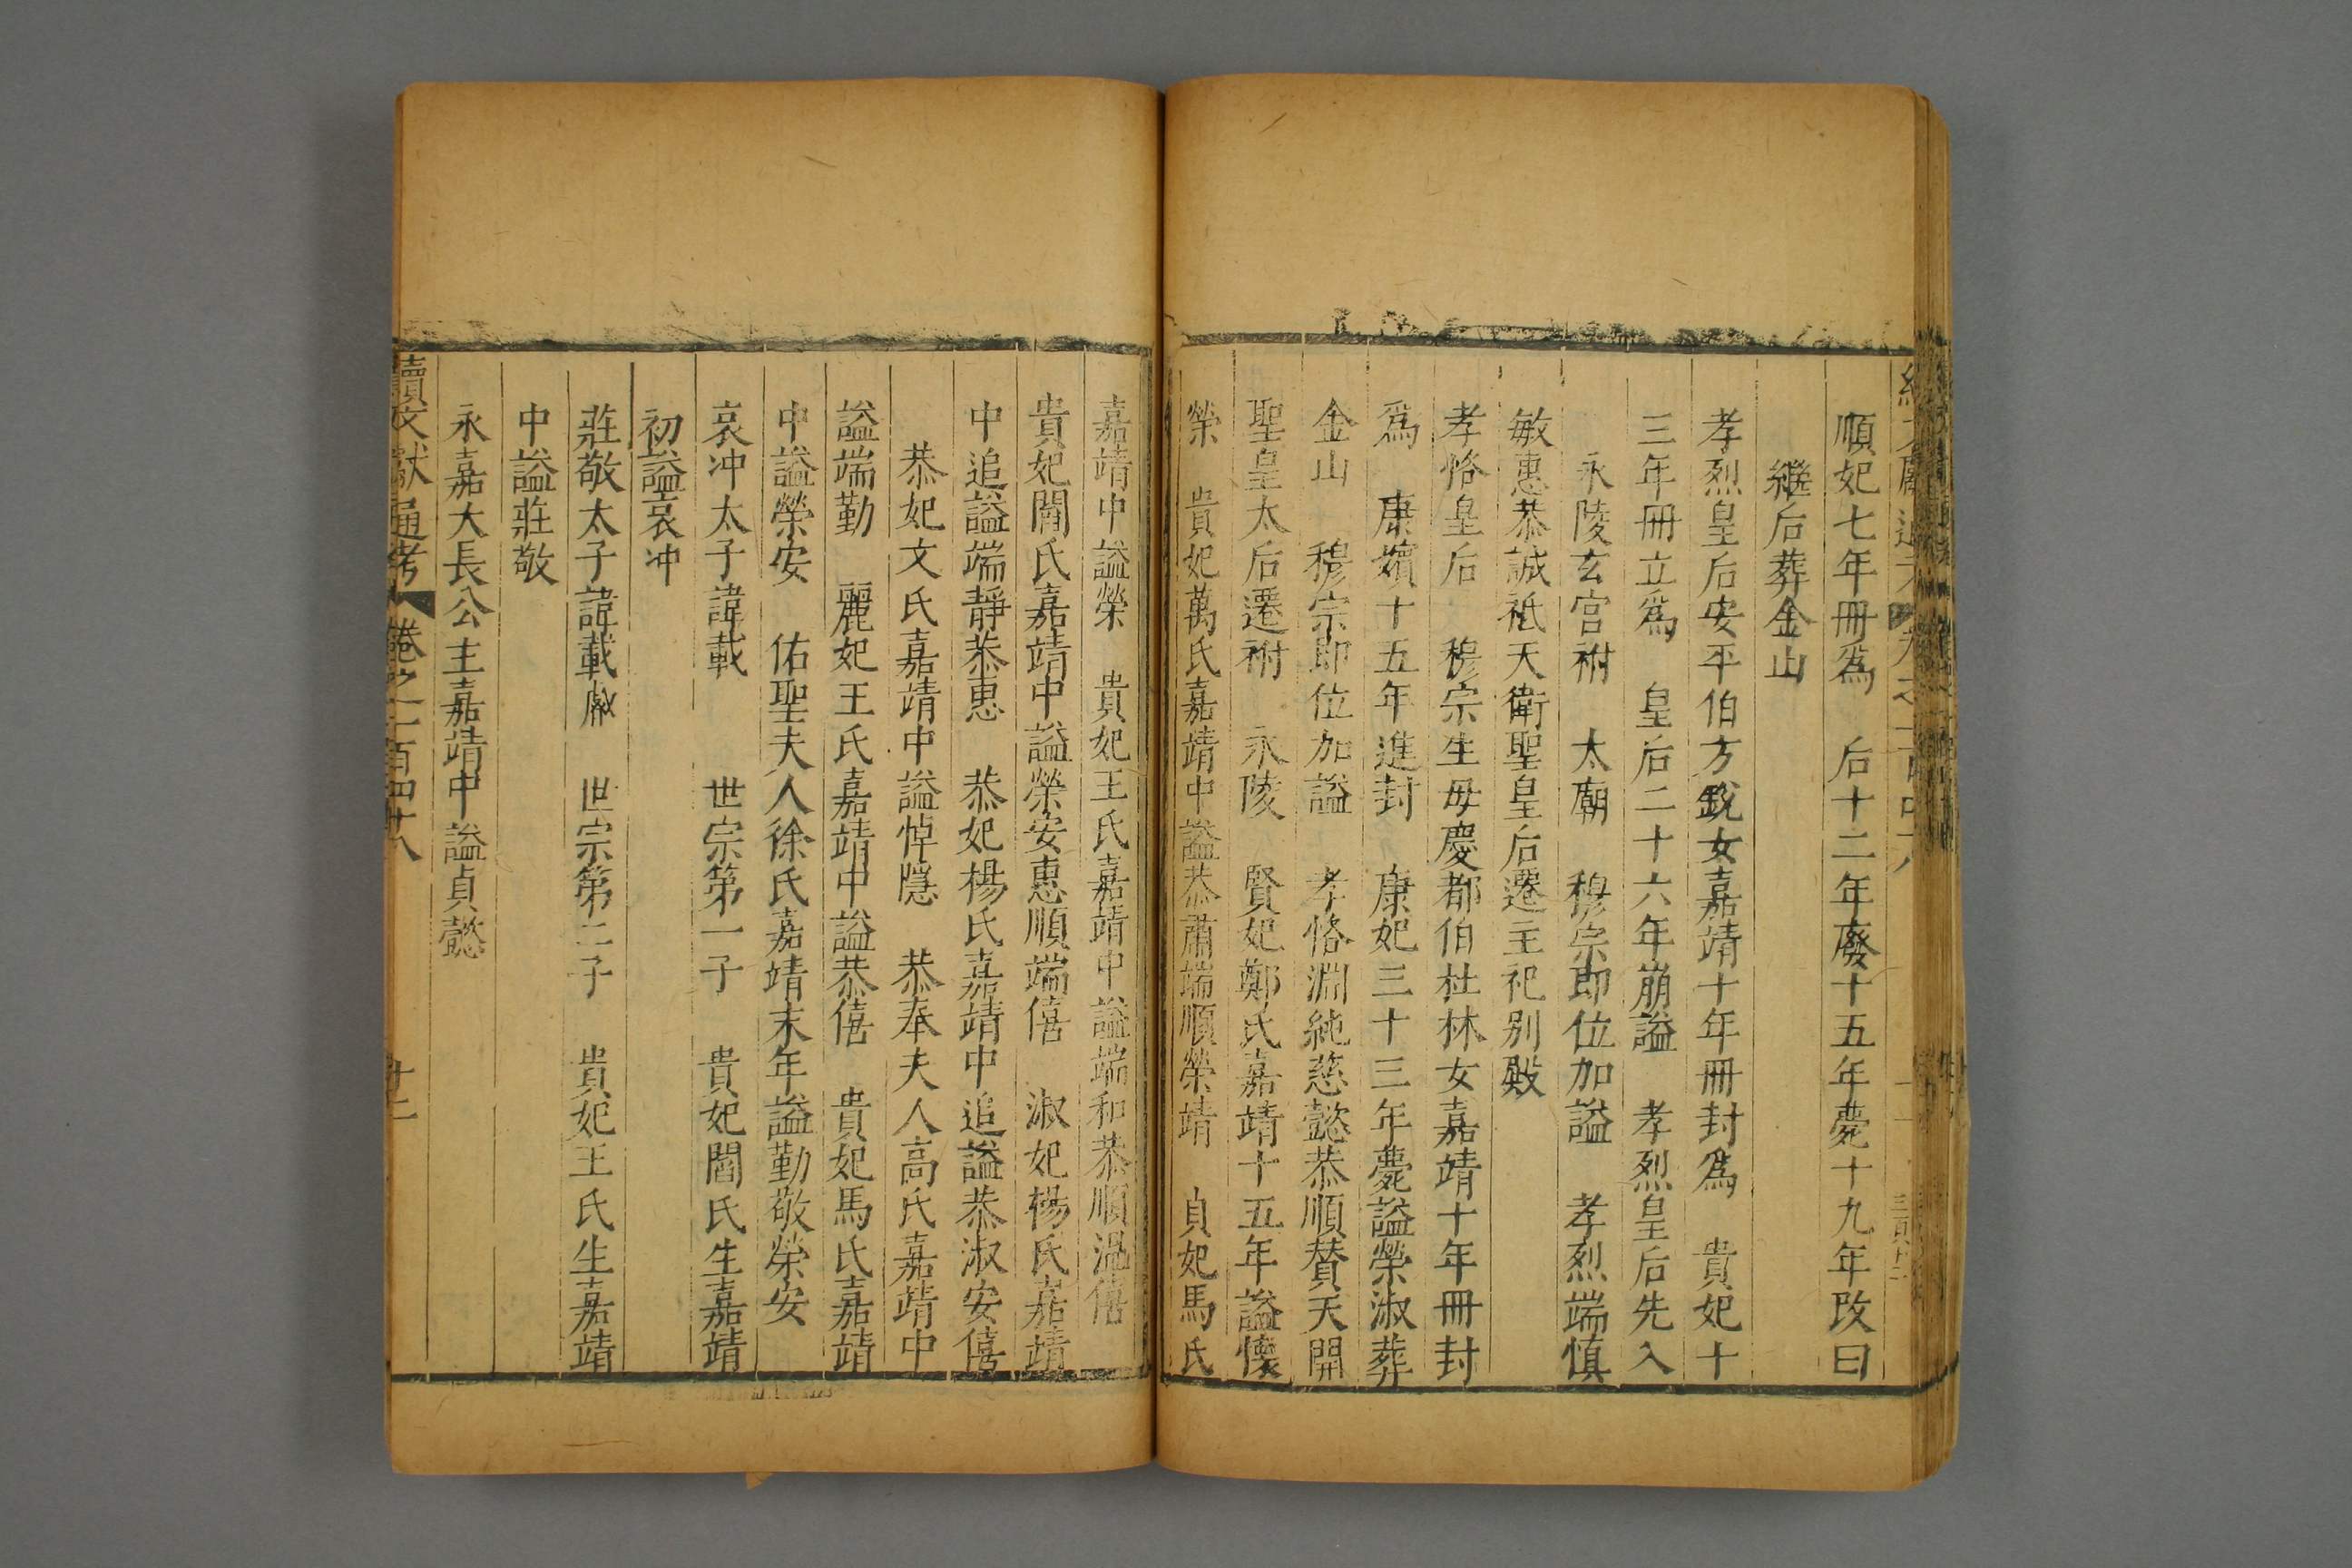 順妃七年冊為　后十二年廢十五年薨十九年改曰
繼后葬金山
孝烈皇后安平伯方銳女嘉靖十年冊封為　貴妃十
三年冊立為　皇后二十六年崩謚　孝烈皇后先入
永陵玄宮祔　太廟　穆宗即位加謚　孝烈端慎
敏惠恭誠祗天衛聖皇后遷主祀别殿
孝恪皇后　穆宗生母慶都伯杜林女嘉靖十年冊封
為　康嬪十五年進封　康妃三十三年薨謚榮淑葬
金山　穆宗即位加謚　孝恪淵純慈懿恭順贊天開
聖皇太后遷祔　永陵　賢妃鄭氏嘉靖十五年謚懷
榮　貴妃萬氏嘉靖中謚恭肅端順榮靖　貞妃馬氏
嘉靖中謚榮　貴妃王氏嘉靖中謚端和恭順温僖
貴妃閻氏嘉靖中謚榮安惠順端僖　淑妃楊氏嘉靖
中追謚端靜恭惠　恭妃楊氏嘉靖中追謚恭淑安僖
恭妃文氏嘉靖中謚悼隱　恭奉夫人高氏嘉靖中
謚端勤　麗妃王氏嘉靖中謚恭僖　貴妃馬氏嘉靖
中謚榮安　佑聖夫人徐氏嘉靖末年謚勤敬榮安
哀冲太子諱載　世宗第一子　貴妃閻氏生嘉靖
初謚哀冲
莊敬太子諱載　世宗第二子　貴妃王氏生嘉靖
中謚莊敬
永嘉大長公主嘉靖中謚貞懿
續文獻通考　卷之二百四十八　廿二